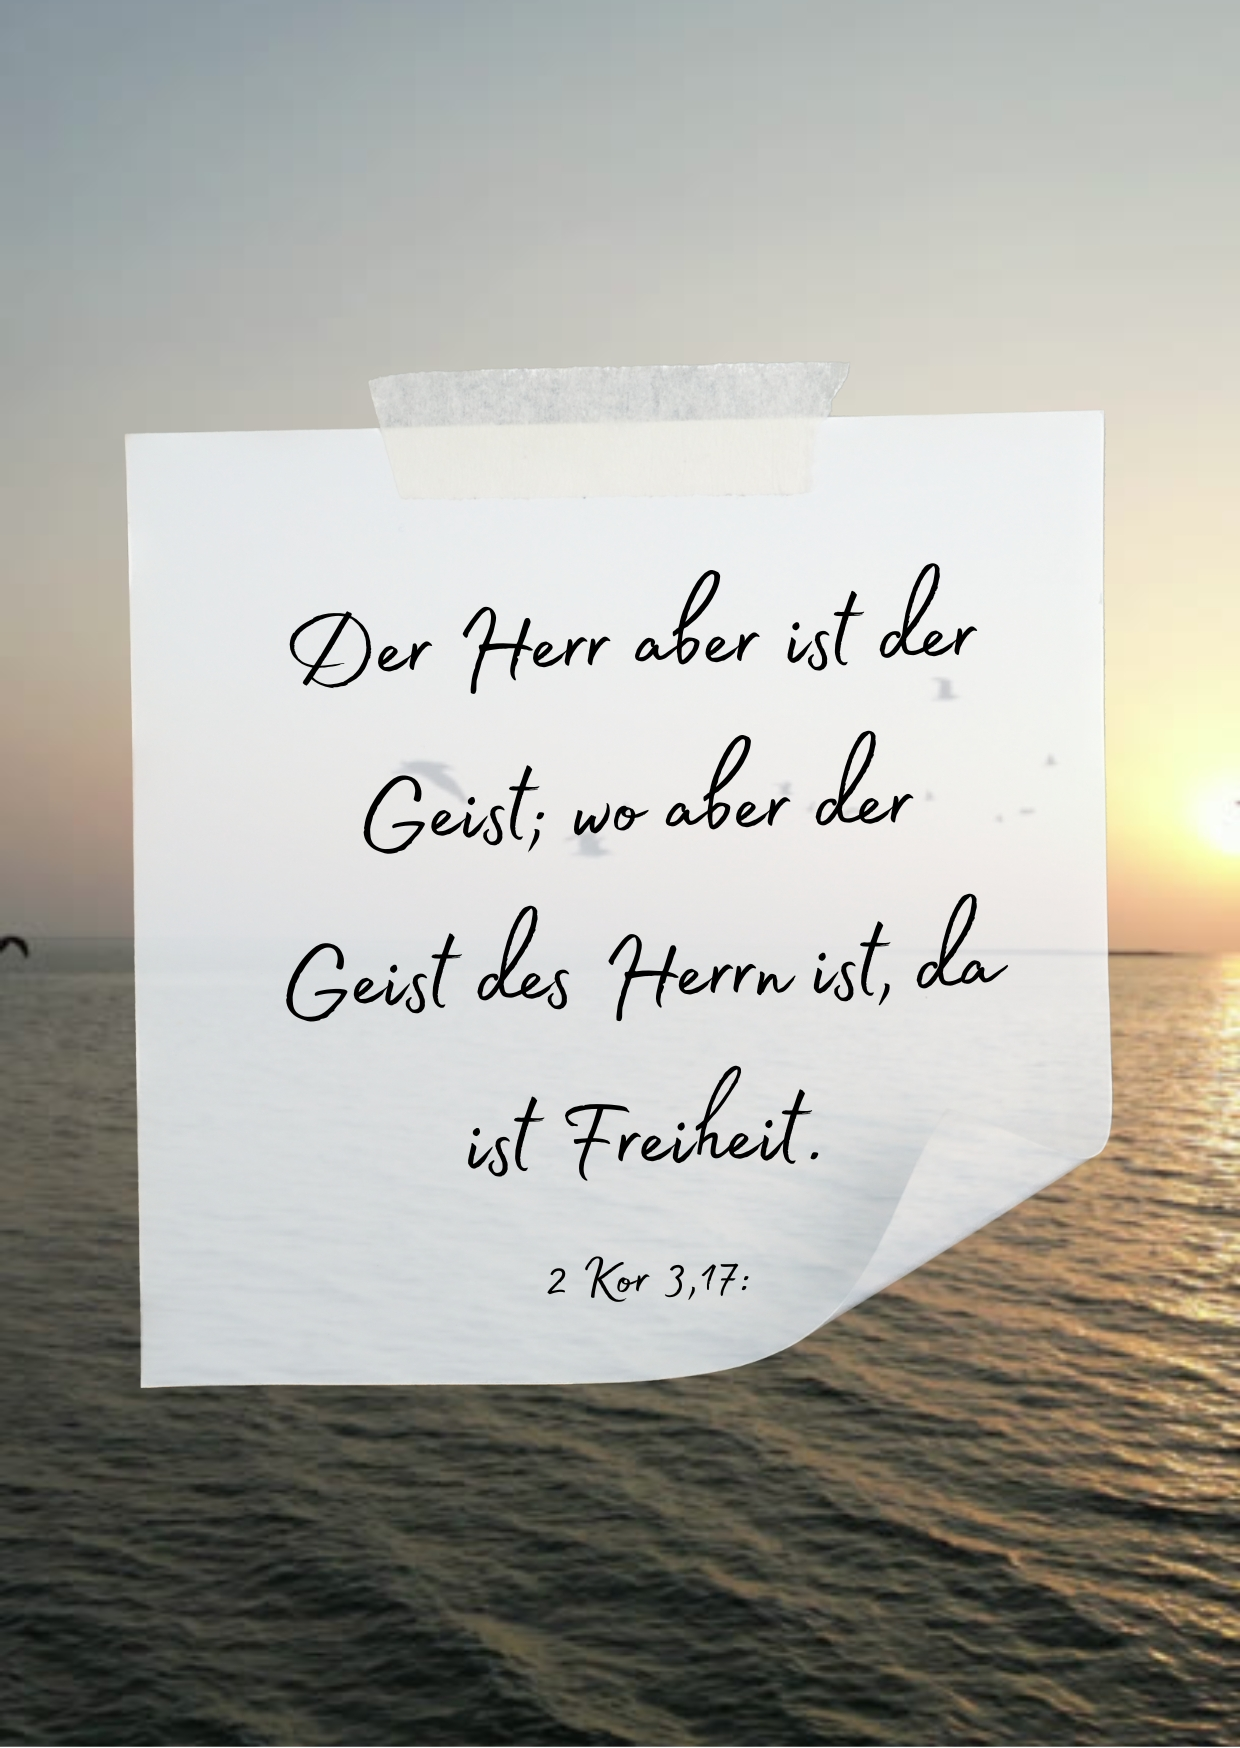 Der Herr aber ist der
Geist; wo aber der
Geist des Herrn ist, da
ist Freiheit.
2 Kor 3,17: